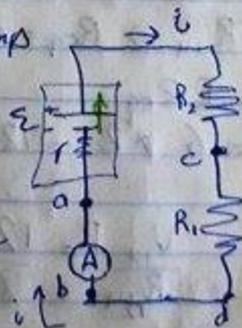 i
R₂
ε
r
c
a
R₁
A
b
i
d